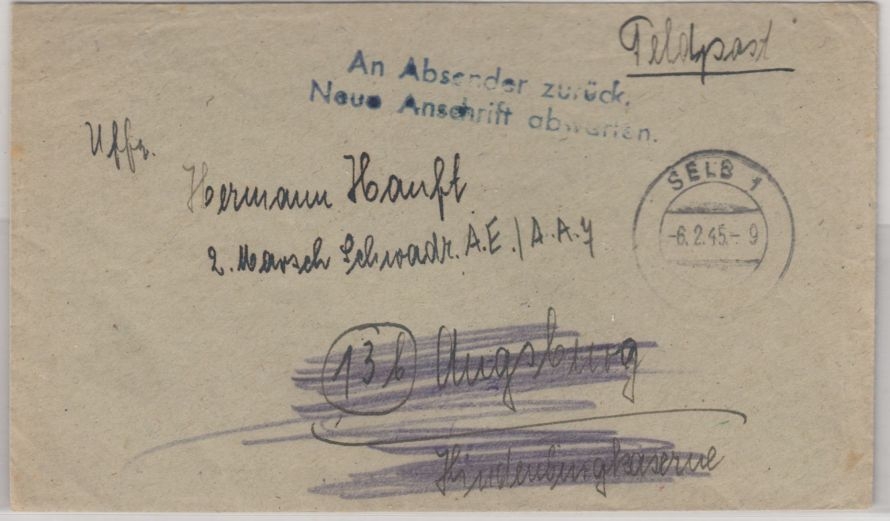 Feldpost
An Absender zurück.
Neue Anschrift abwarten.
Uffz.
SELB 1
-6.2.45.-9
Hermann Hanft
2. Marsch Schwadr. A.E./A.A.7
13b Augsburg
Hindenburgkaserne